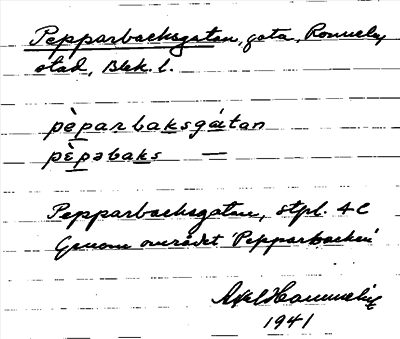 Pepparbacksgatan, gata, Ronneby
stad, Blek. l.
pèparbaksgátan
pèpəbaks —
Pepparbacksgatan, stpl. 4C
Genom området 'Pepparbacken'
Axel
1941